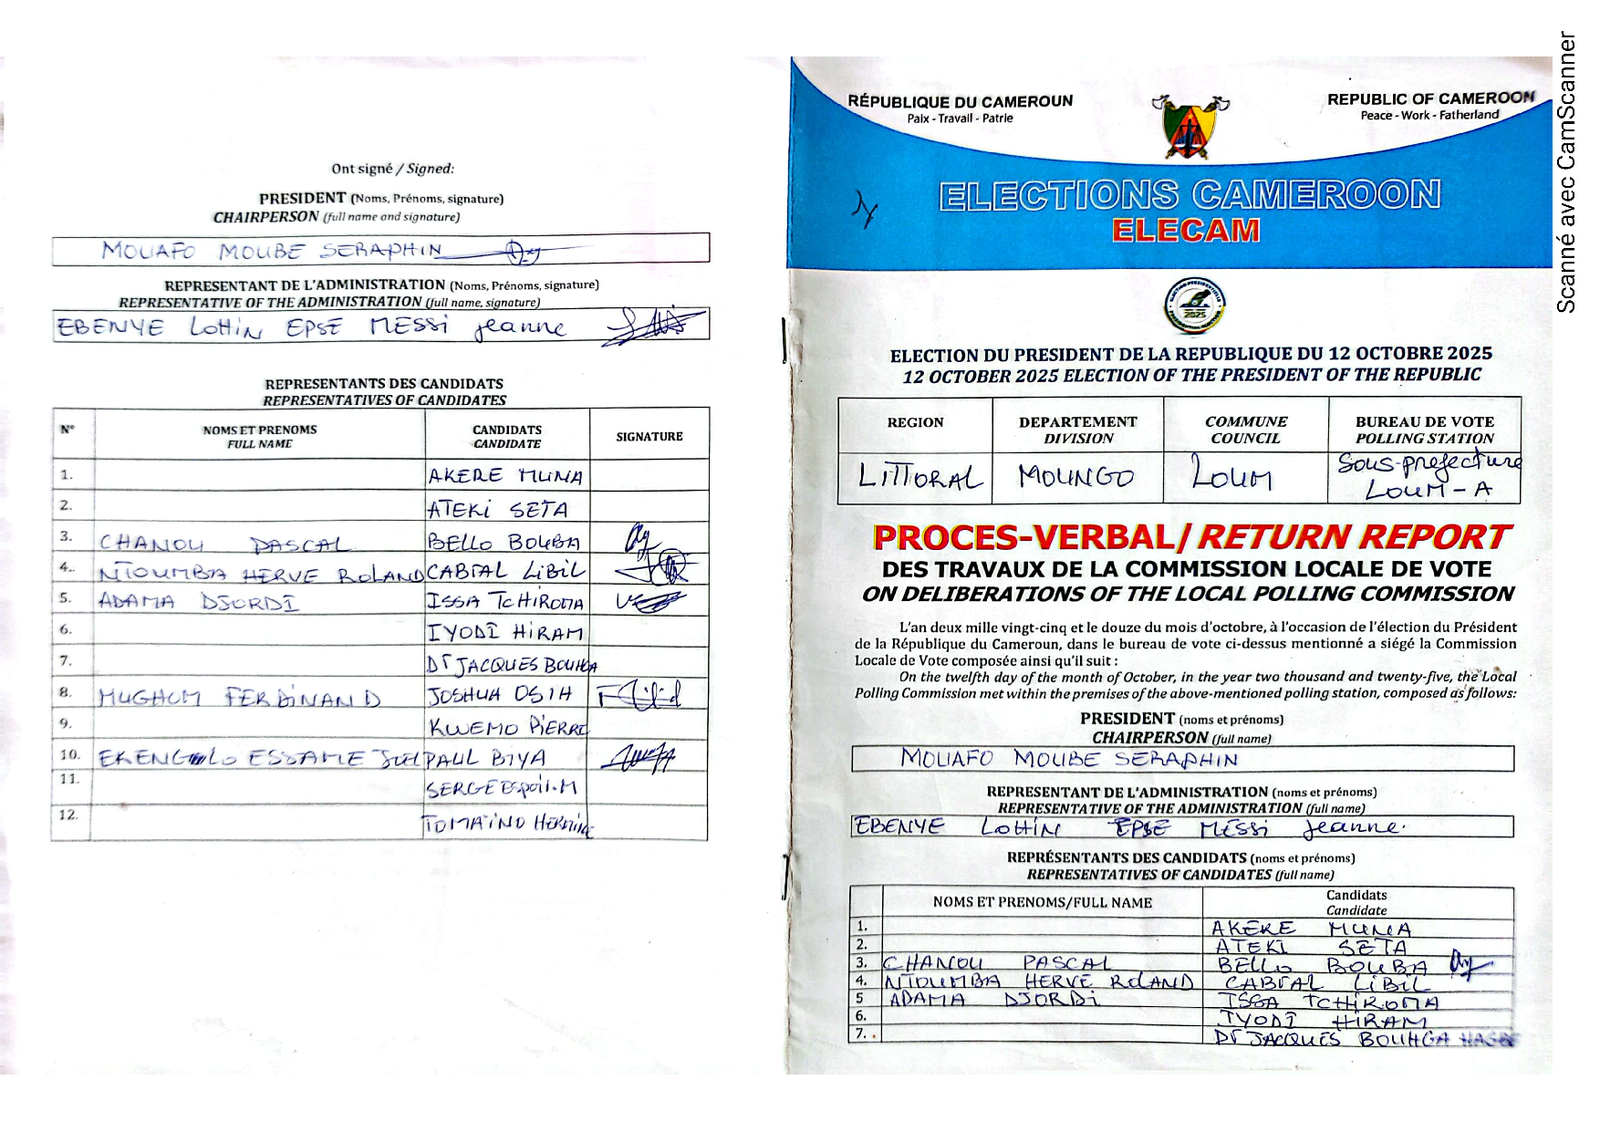 Ont signé / Signed:
PRESIDENT (Noms, Prénoms, signature)
CHAIRPERSON (full name and signature)
MOUAFO MOUBE SERAPHIN
REPRESENTANT DE L'ADMINISTRATION (Noms, Prénoms, signature)
REPRESENTATIVE OF THE ADMINISTRATION (full name, signature)
EBENYE LOHIN EPSE MESSI Jeanne
REPRESENTANTS DES CANDIDATS
REPRESENTATIVES OF CANDIDATES
N° NOMS ET PRENOMS CANDIDATS SIGNATURE
FULL NAME CANDIDATE
1. AKERE MUNA
2. ATEKI SETA
3. CHANOU PASCAL BELLO BOUBA
4. NTOUMBA HERVE ROLAND CABRAL LIBII
5. ADAMA DJORDI ISSA TCHIROMA
6. IYODI HIRAM
7. Dr JACQUES BOUHGA
8. MUGHOM FERDINAND JOSHUA OSIH
9. KWEMO PIERRE
10. ESSAME JOEL PAUL BIYA
11. SERGE Espoir.M
12. TOMAINO
RÉPUBLIQUE DU CAMEROUN
Paix - Travail - Patrie
REPUBLIC OF CAMEROON
Peace - Work - Fatherland
ELECTIONS CAMEROON
ELECAM
2025
ELECTION DU PRESIDENT DE LA REPUBLIQUE DU 12 OCTOBRE 2025
12 OCTOBER 2025 ELECTION OF THE PRESIDENT OF THE REPUBLIC
REGION DEPARTEMENT COMMUNE BUREAU DE VOTE
DIVISION COUNCIL POLLING STATION
LITTORAL MOUNGO LOUM Sous-prefecture
LOUM-A
PROCES-VERBAL/RETURN REPORT
DES TRAVAUX DE LA COMMISSION LOCALE DE VOTE
ON DELIBERATIONS OF THE LOCAL POLLING COMMISSION
L'an deux mille vingt-cinq et le douze du mois d'octobre, à l'occasion de l'élection du Président
de la République du Cameroun, dans le bureau de vote ci-dessus mentionné a siégé la Commission
Locale de Vote composée ainsi qu'il suit :
On the twelfth day of the month of October, in the year two thousand and twenty-five, the Local
Polling Commission met within the premises of the above-mentioned polling station, composed as follows:
PRESIDENT (noms et prénoms)
CHAIRPERSON (full name)
MOUAFO MOUBE SERAPHIN
REPRESENTANT DE L'ADMINISTRATION (noms et prénoms)
REPRESENTATIVE OF THE ADMINISTRATION (full name)
EBENYE LOHIN EPSE MESSI Jeanne.
REPRÉSENTANTS DES CANDIDATS (noms et prénoms)
REPRESENTATIVES OF CANDIDATES (full name)
NOMS ET PRENOMS/FULL NAME Candidats
Candidate
1. AKERE MUNA
2. ATEKI SETA
3. CHANOU PASCAL BELLO BOUBA
4. NTOUMBA HERVE ROLAND CABRAL LIBII
5 ADAMA DJORDI ISSA TCHIROMA
6. IYODI HIRAM
7. Dr JACQUES BOUHGA
Scanné avec CamScanner